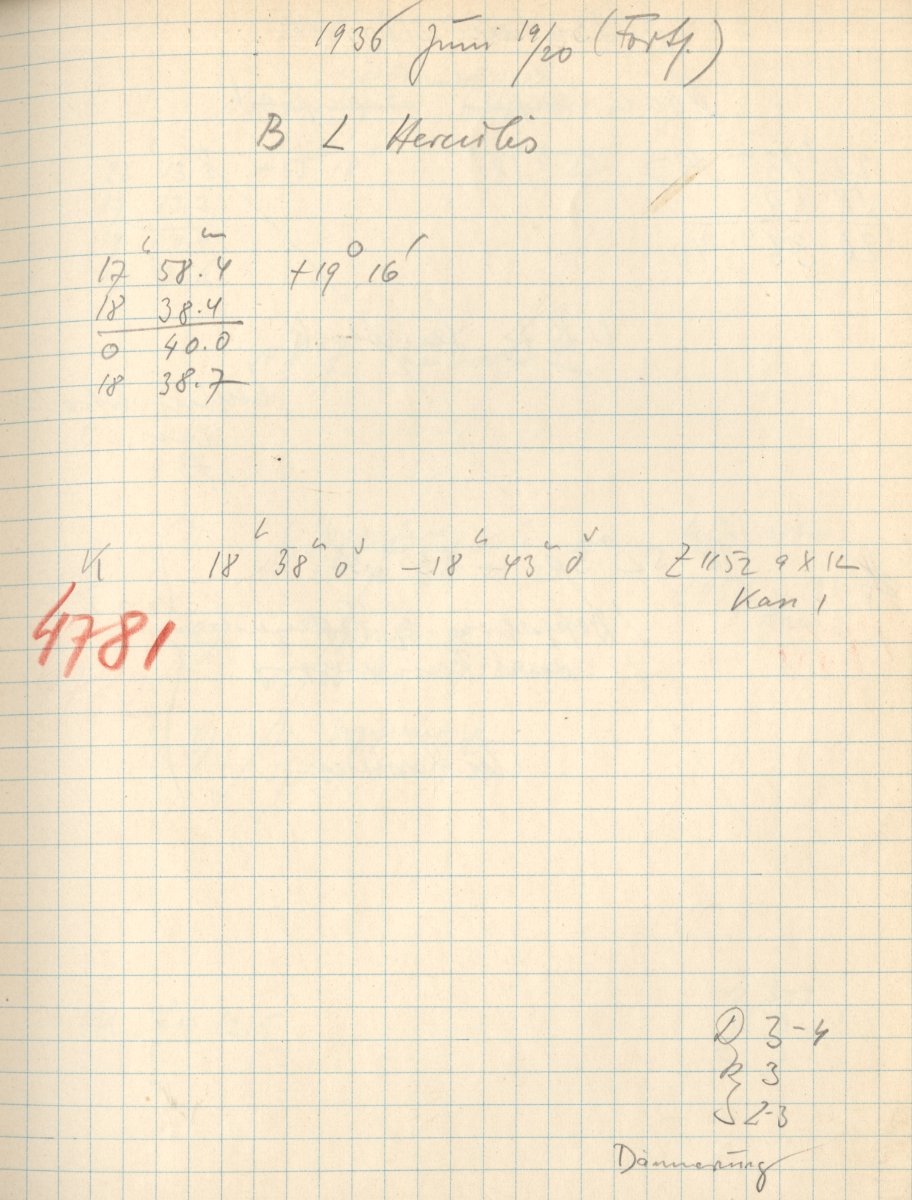 1936 Juni 19/20 (Forts.)
B L Herculis
17ʰ 58.4ᵐ +19° 16′
18 38.4
0 40.0
18 38.7
K 18ʰ 38ᵐ 0ˢ – 18ʰ 43ᵐ 0ˢ Z 1152 9 x 12
4781 Kass 1
D 3-4
R 3
S 2-3
Dämmerung